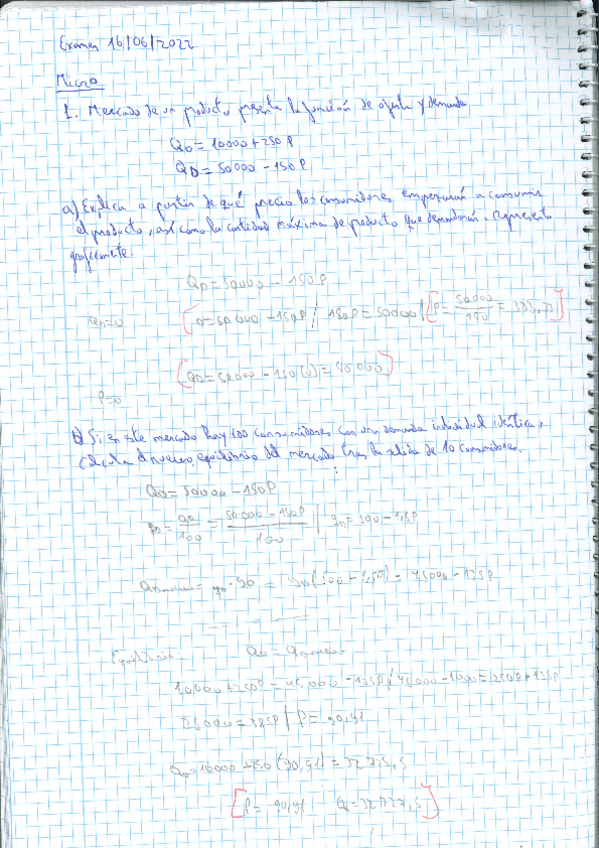 Examen 16/06/2022
Micro
1. Mercado de un producto presenta la función de oferta y demanda
Qo = 10000 + 250P
QD = 50000 - 150P
a) Explica a partir de qué precio los consumidores empezarán a consumir
el producto, así como la cantidad máxima de producto que demandarán. represente
graficamente.
QD = 50000 - 150P
QD=0 0 = 50000 - 150P / 150P = 50000 / P = 50000/150 = 333,33
QD = 50000 - 150(0) = 50,000
P=0
b) Si en este mercado hay 100 consumidores con una demanda individual idéntica,
calcula el nuevo equilibrio del mercado tras la salida de 10 consumidores.
QD = 50000 - 150P
qD = QD/100 = 50000 - 150P/100 | qD = 500 - 1,5P
= qD · 90 = 90(500 - 1,5P) = 45000 - 135P
Equilibrio: Qo =
10000 + 250P = 45000 - 135P /
35000 = 385P | P = 90,91
Qo = 10000 + 250(90,91) = 32727,5
P = 90,91 Q = 32727,5